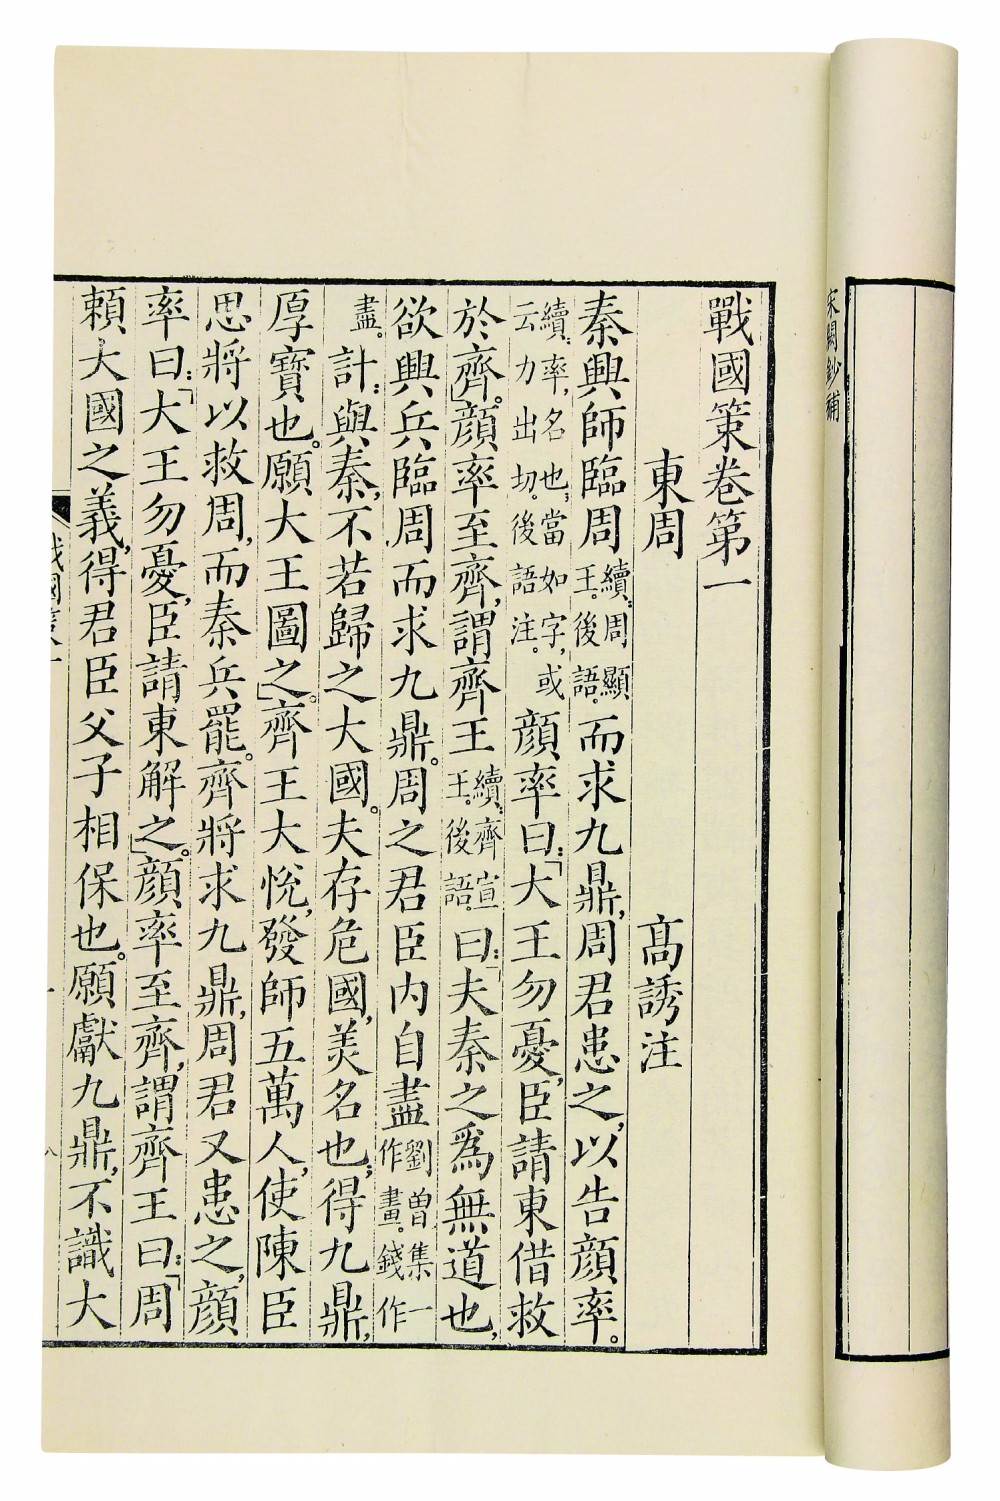 宋闕鈔補
戰國策卷第一
東周　髙誘注
秦興師臨周續:周顯王。後語。而求九鼎,周君患之,以告顔率。
續:率,名也,當如字,或云力出切。後語注。顔率曰:「大王勿憂,臣請東借救
於齊。」顔率至齊,謂齊王續:齊宣王。後語。曰:「夫秦之爲無道也,
欲興兵臨周而求九鼎。周之君臣内自盡劉曾集一作畫。錢作
盡。計:與秦,不若歸之大國。夫存危國,美名也;得九鼎,
厚寶也。願大王圖之。」齊王大悅,發師五萬人,使陳臣
思將以救周,而秦兵罷。齊將求九鼎,周君又患之,顔
率曰:「大王勿憂,臣請東解之。」顔率至齊,謂齊王曰:「周
頼大國之義,得君臣父子相保也。願獻九鼎,不識大